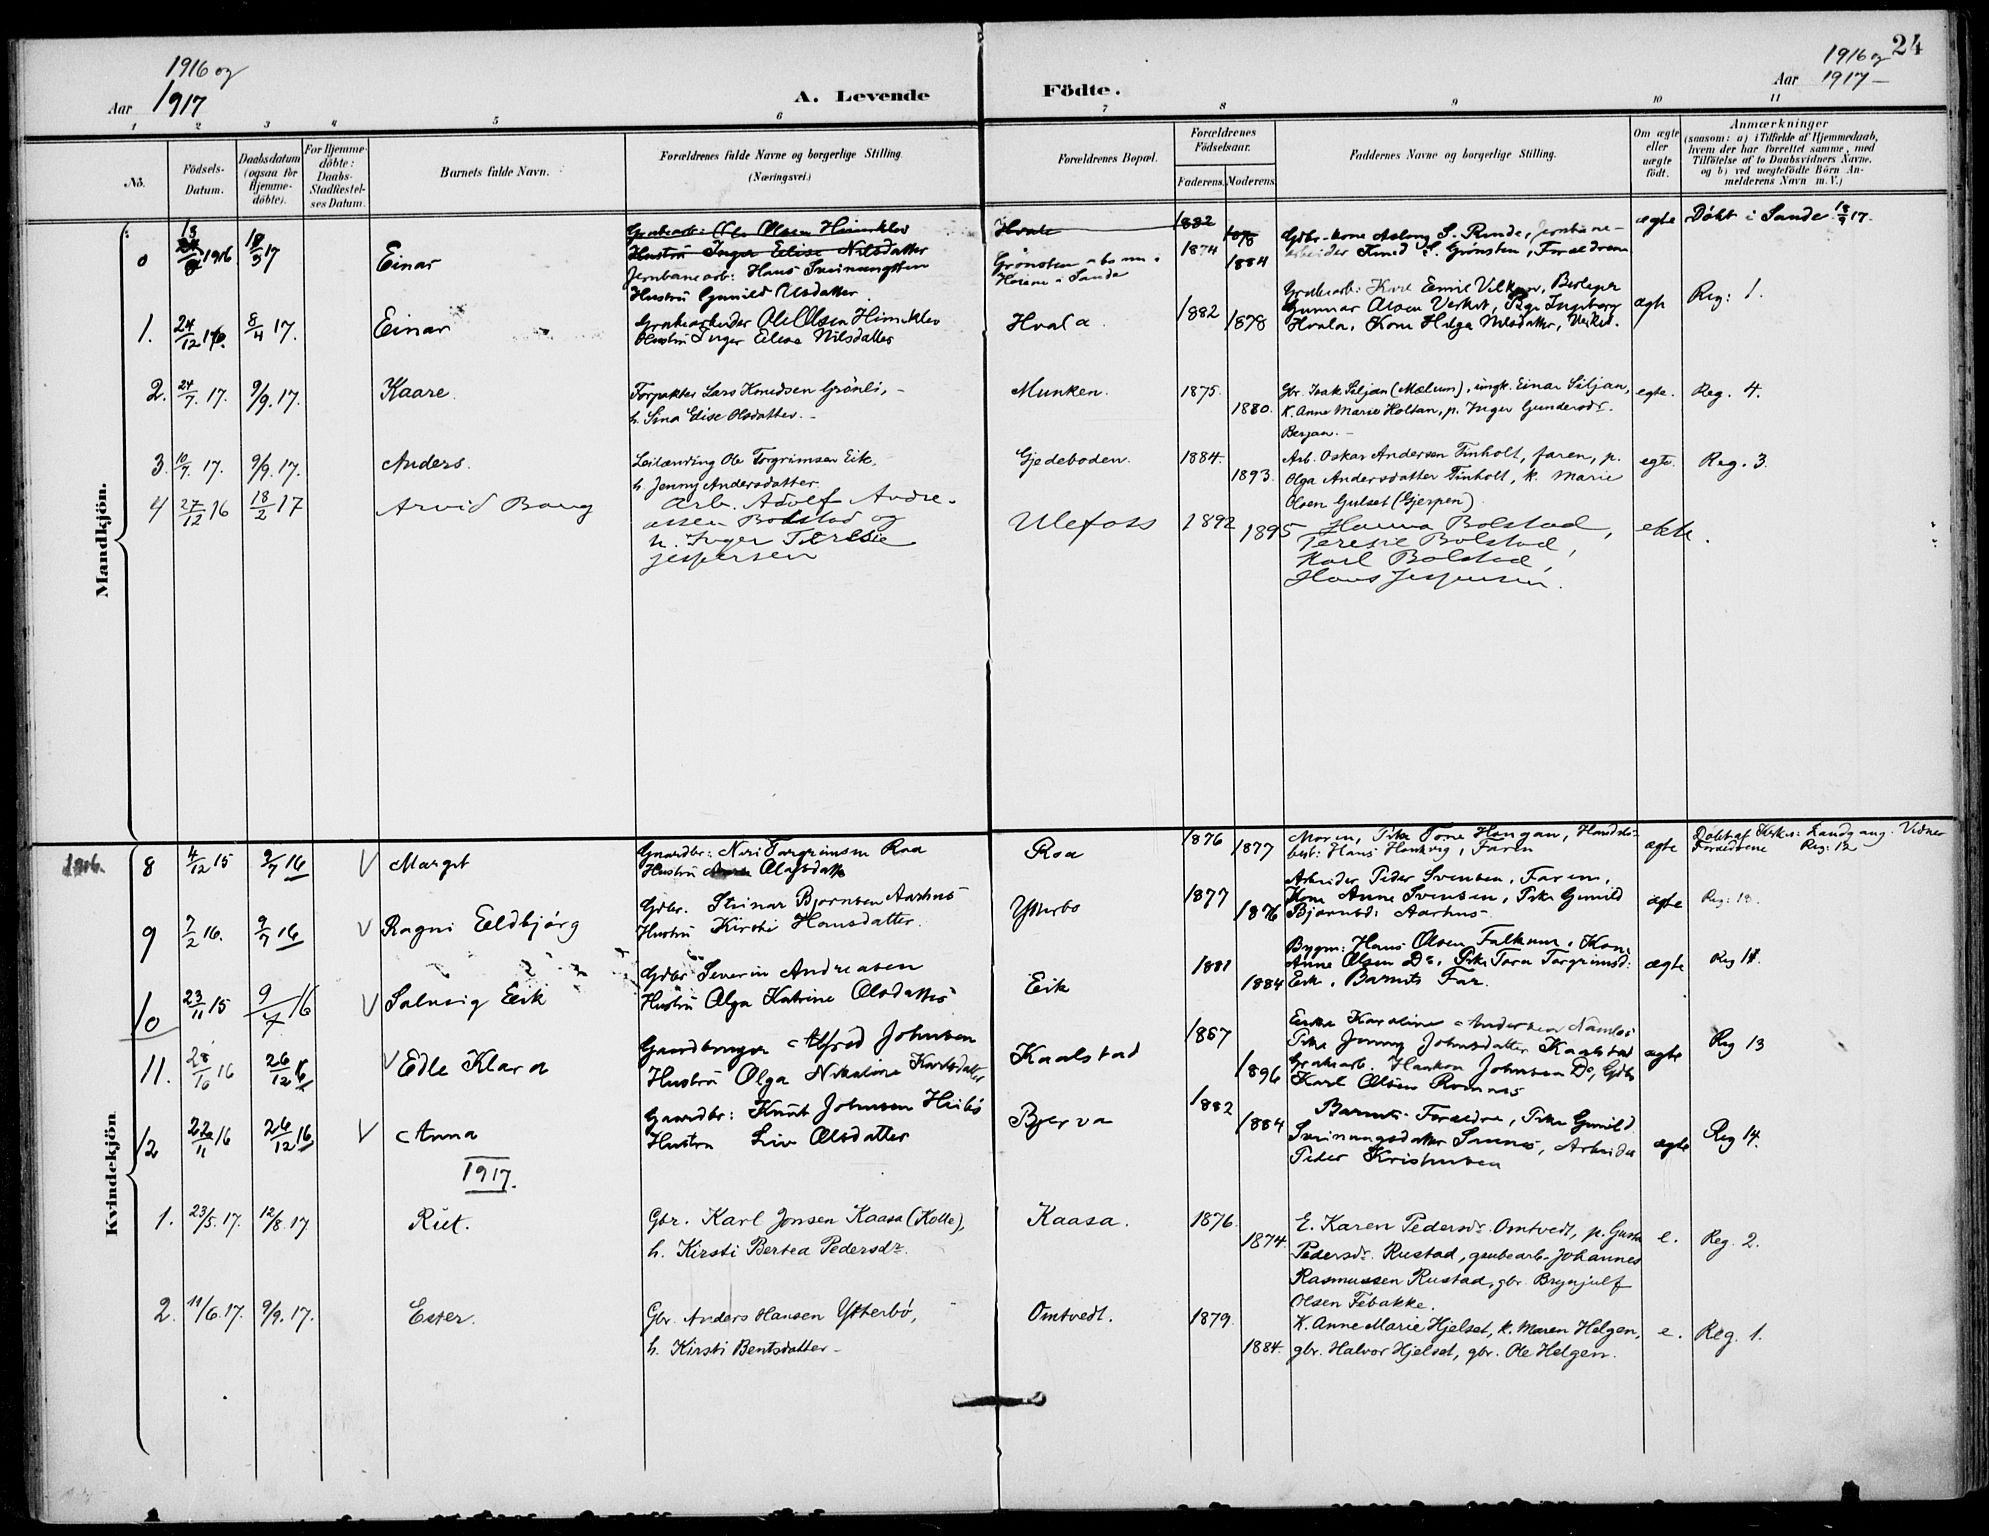 24
1916 og
Aar 1917
A. Levende Födte.
1916 og
Aar 1917 –
1 2 3 4 5 6 7 8 9 10 11
No.
Födsels-
Datum.
Daabsdatum
(ogsaa for
Hjemme-
döbte).
For Hjemme-
döbte:
Daabs-
Stadfæstel-
ses Datum.
Barnets fulde Navn.
Forældrenes fulde Navne og borgerlige Stilling
(Næringsvei.)
Forældrenes Bopæl.
Forældrenes
Födselsaar.
Faderens. Moderens.
Faddernes Navne og borgerlige Stilling.
Om ægte
eller
uægte
födt.
Anmærkninger
(saasom: a) i Tilfælde af Hjemmedaab,
hvem der har forrettet samme, med
Tilföielse af to Daabsvidners Navne.
og b) ved uægtefödte Börn An-
melderens Navn m. V.)
Mandkjön.
0 1916 Einar
Grubearb: Ole Olsen Himeklev
Hustru Inger Elise Nilsdatter
Jernbanearb: Hans Sveinungsen
Hustru Gunild Olsdatter
Hvala
Grønsten
i Sande
1882 1878
1874 1884
Gdbr. kone Aslaug S. Runde,
Knud S. Grønsten, Forældrene
ægte Døbt i Sande 18/9 17.
1. 24/12 16. 8/4 17. Einar
Grubearbeider Ole Olsen Himeklev
Hustru Inger Elise Nilsdatter
Hvala 1882 1878
Grubearb: Karl Emil
Gunnar Olsen Verket, Pige Ingeborg
Hvala, Kone Helga Nilsdatter, Verket.
ægte Reg: 1.
2. 24/7. 17. 9/9. 17. Kaare.
Forpakter Lars Knudsen Grönli, –
h. Sina Elise Olsdatter. –
Munken. 1875. 1880.
Gbr. Isak Siljan (Mælum), ungk. Einar Siljan,
k. Anne Marie Holtan, p. Inger Gundersdr.
Berjan. –
egte. Reg. 4.
3. 10/7. 17. 9/9. 17. Anders.
Leilænding Ole Torgrimsen Eik,
h. Jenny Andersdatter.
Gjedeboden. 1884. 1893.
Arb. Oskar Andersen Tinholt, faren, p.
Olga Andersdatter Tinholt, k. Marie
Olsen Gulset (Gjerpen)
egte. Reg. 3.
4 27/12 16 18/2 17 Arvid Bang
Arb. Adolf Andre-
assen Bolstad og
h. Inger Terese
Jespersen
Ulefoss 1892 1895
Hanna Bolstad,
Terese Bolstad,
Karl Bolstad,
Hans Jespersen.
ekte.
Kvindekjön
1916.
8 4/12 15 9/7 16 Margit
Gaardbr: Neri Torgrimsen Roa
Hustru Olafsdatter
Roa 1876 1877
Moren, Pike Tone Haugan, Handels-
best: Hans Haukvig, Faren
ægte
Forældrene Reg: 12
9 7/2 16. 9/7 16 Ragni Eeldbjørg
Gdbr. Steinar Bjørnsen Aarhus
Hustru Kirsti Hansdatter
Ytterbø 1877 1876
Arbeider Peder Svensen, Faren,
Kone Anne Svensen, Pike Gunild
Bjørnsd: Aarhus –
ægte
10 23/11 15 9/7 16 Solveig Eik
Gdbr Severin Andreasen
Hustru Olga Katrine Olsdatter
Eik 1881 1884
Bygm: Hans Olsen Falkum, Kone
Anne Olsen Do, Pike Torgrimsd:
Eik, Barnets Far.
ægte
11. 28/10 16 26/12 16 Edle Klara
Gaardbruger Alfred Johnsen
Hustru Olga Nikoline Karlsdatter
Kaalstad 1887 1896
Enke Karoline Andersen
Pike Jenny Johnsdatter Kaalstad
Grubearb. Haakon Johnsen Do, Gdbr
Karl Olsen Romnæs
ægte Reg 13
12 22/11 16 26/12 16 Anna
Gaardbr: Knut Johnsen Heibö
Hustru Liv Olsdatter
Bjerva 1882 1884
Barnets Forældre, Pike Gunild
Sveinungsdatter, Arbeider
Peder Kristensen
ægte Reg 14.
1917.
1. 23/5. 17. 12/8. 17 Rut.
Gbr. Karl Jonsen Kaasa (Kolte),
h. Kirsti Bertea Pedersdr.
Kaasa. 1876. 1874.
E. Karen Pedersdr. Omtvedt, p.
Pedersdr. Rustad, grubearb. Johannes
Rasmussen Rustad, gbr. Brynjulf
Olsen Tebakke.
e. Reg. 2.
2. 11/6. 17. 9/9. 17. Ester.
Gbr. Anders Hansen Ytterbö,
h. Kirsti Bentsdatter –
Omtvedt. 1879. 1884.
K. Anne Marie Hjelset, k. Maren Helgen,
gbr. Halvor Hjelset, gbr. Ole Helgen.
e. Reg. 1.